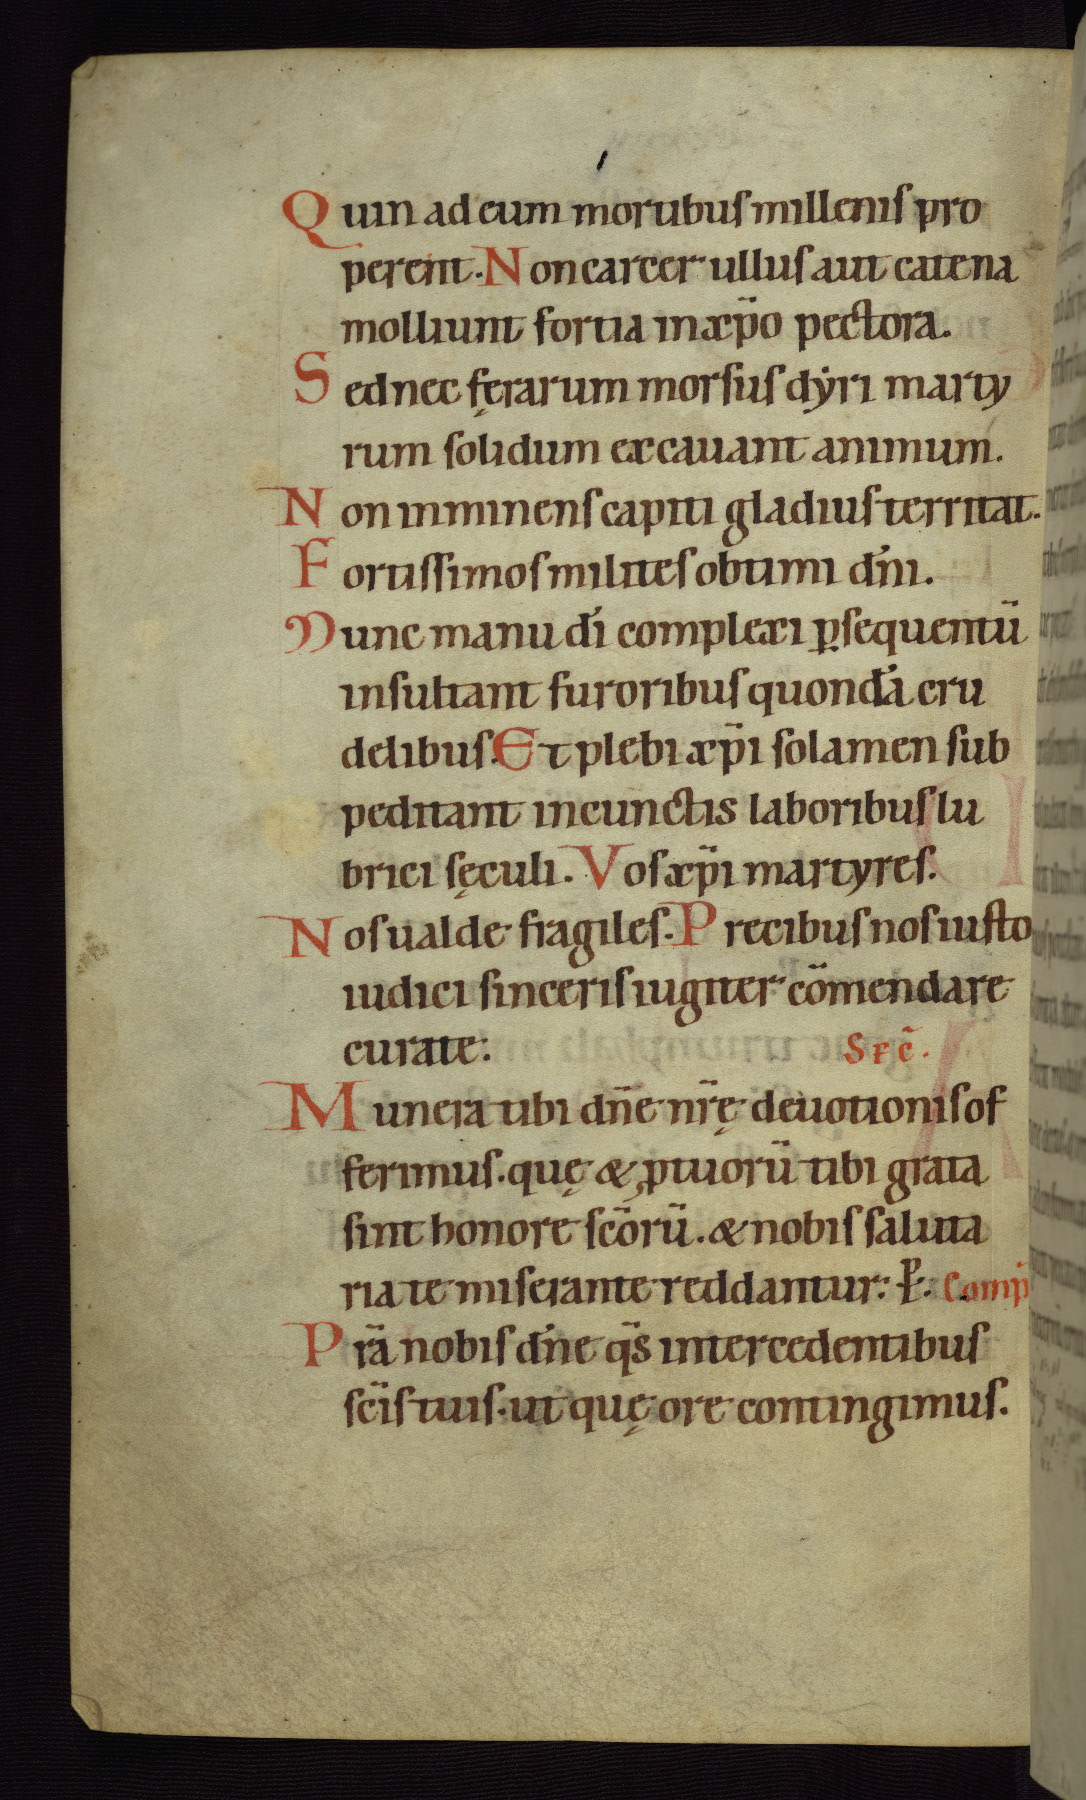 Quin ad eum mortibus millenis pro
perent. Non carcer ullus aut catena
molliunt fortia in xp̄o pectora.
Sed nec fęrarum morsus dẏri marty
rum solidum excauant animum.
Non inminens capiti gladius territat.
Fortissimos milites obtimi dn̄i.
Nunc manu dī complexi ꝑsequentū
insultant furoribus quondā cru
delibus. Et plebi xp̄i solamen sub
peditant in cunctis laboribus lu
brici sęculi. Vos xp̄i martyres.
Nos ualde fragiles. Precibus nos iusto
iudici sinceris iugiter cōmendare
curate: Sec̄.
Munera tibi dn̄e nr̄ę deuotionis of
ferimus. quę & ꝓ tuorū tibi grata
sint honore sc̄orū. & nobis saluta
ria te miserante reddantur: P. Comp̄
Pr̄a nobis dn̄e qs̄ intercedentibus
sc̄is tuis. ut quę ore contingimus.